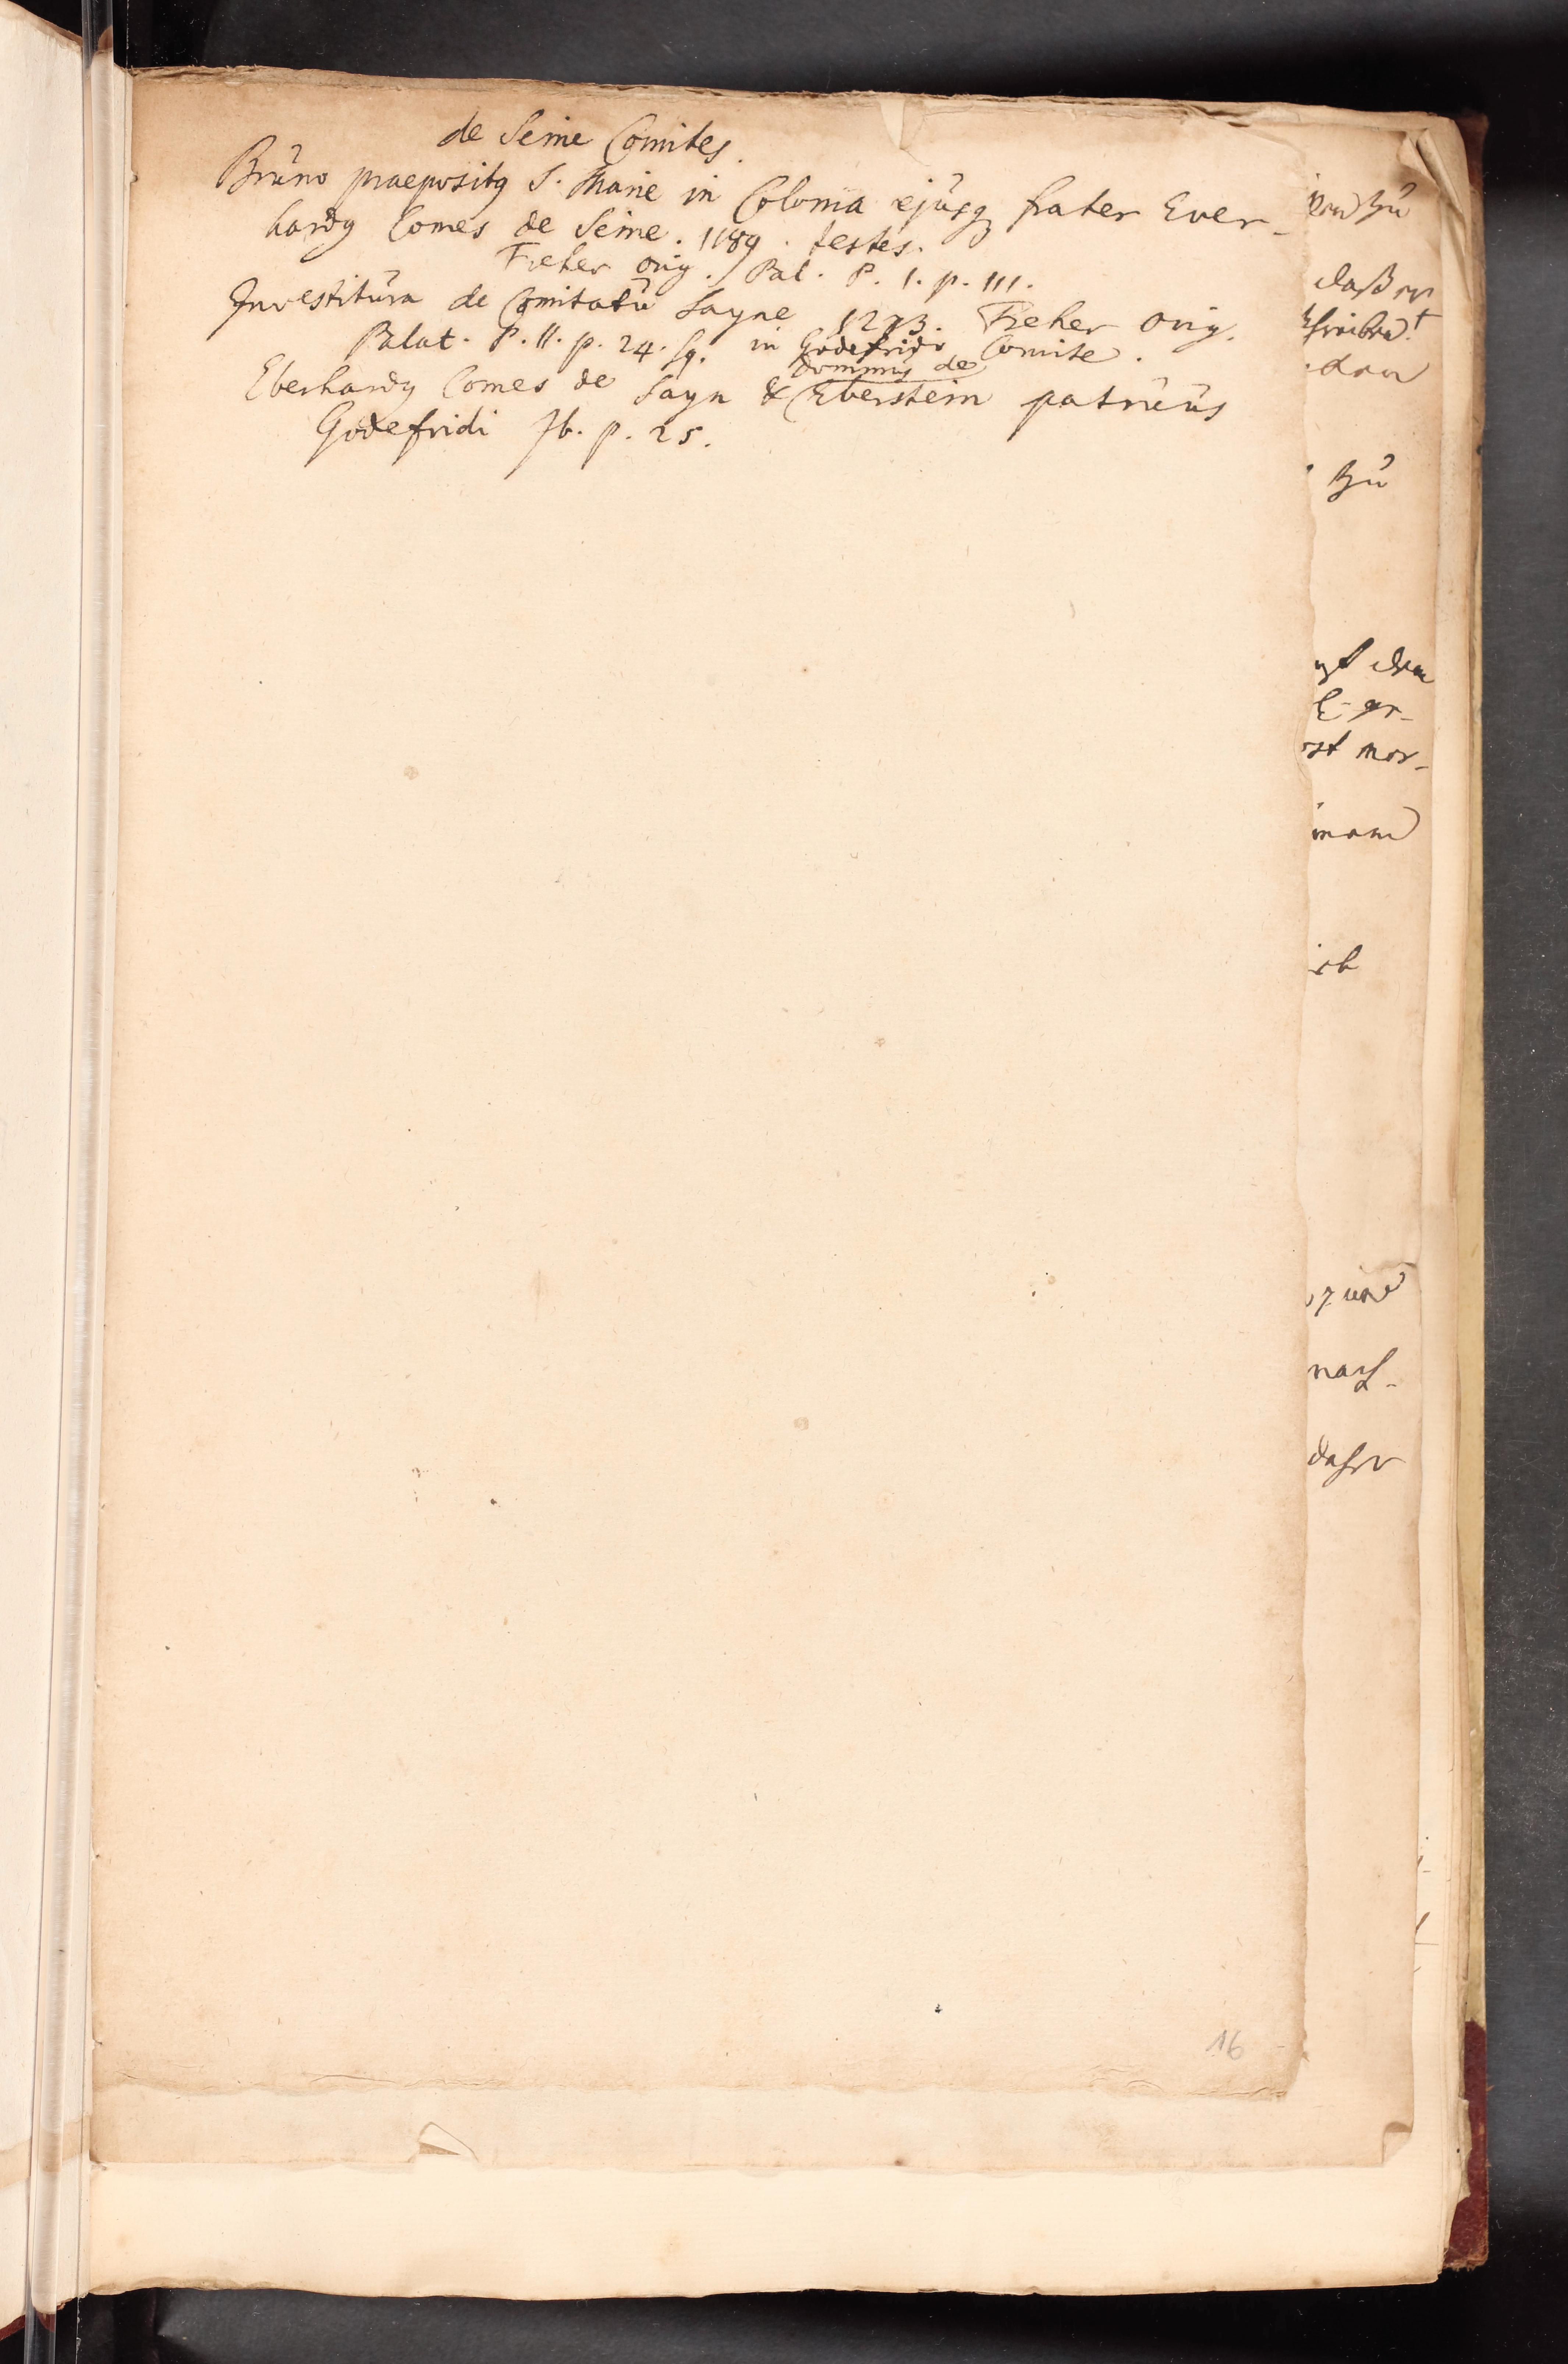 de Seine Comites.
Brŭno praepositꝯ S. Marie in Colonia ejŭsqꝫ frater Ever-
hardꝯ Comes de Seine. 1189. testes.
Freher orig. Pal. P. I. p. 111.
Investitŭra de Comitatŭ Sayne 1273. Freher orig.
Palat. P. II. p. 24. sq. in Godefrido Comite.
dominŭs de
Eberhardꝯ Comes de Sayn & Eberstein patrŭŭs
Godefridi Ib. p. 25.
zŭ
daß er
den
Zŭ
st mor-
nach-
daher
16